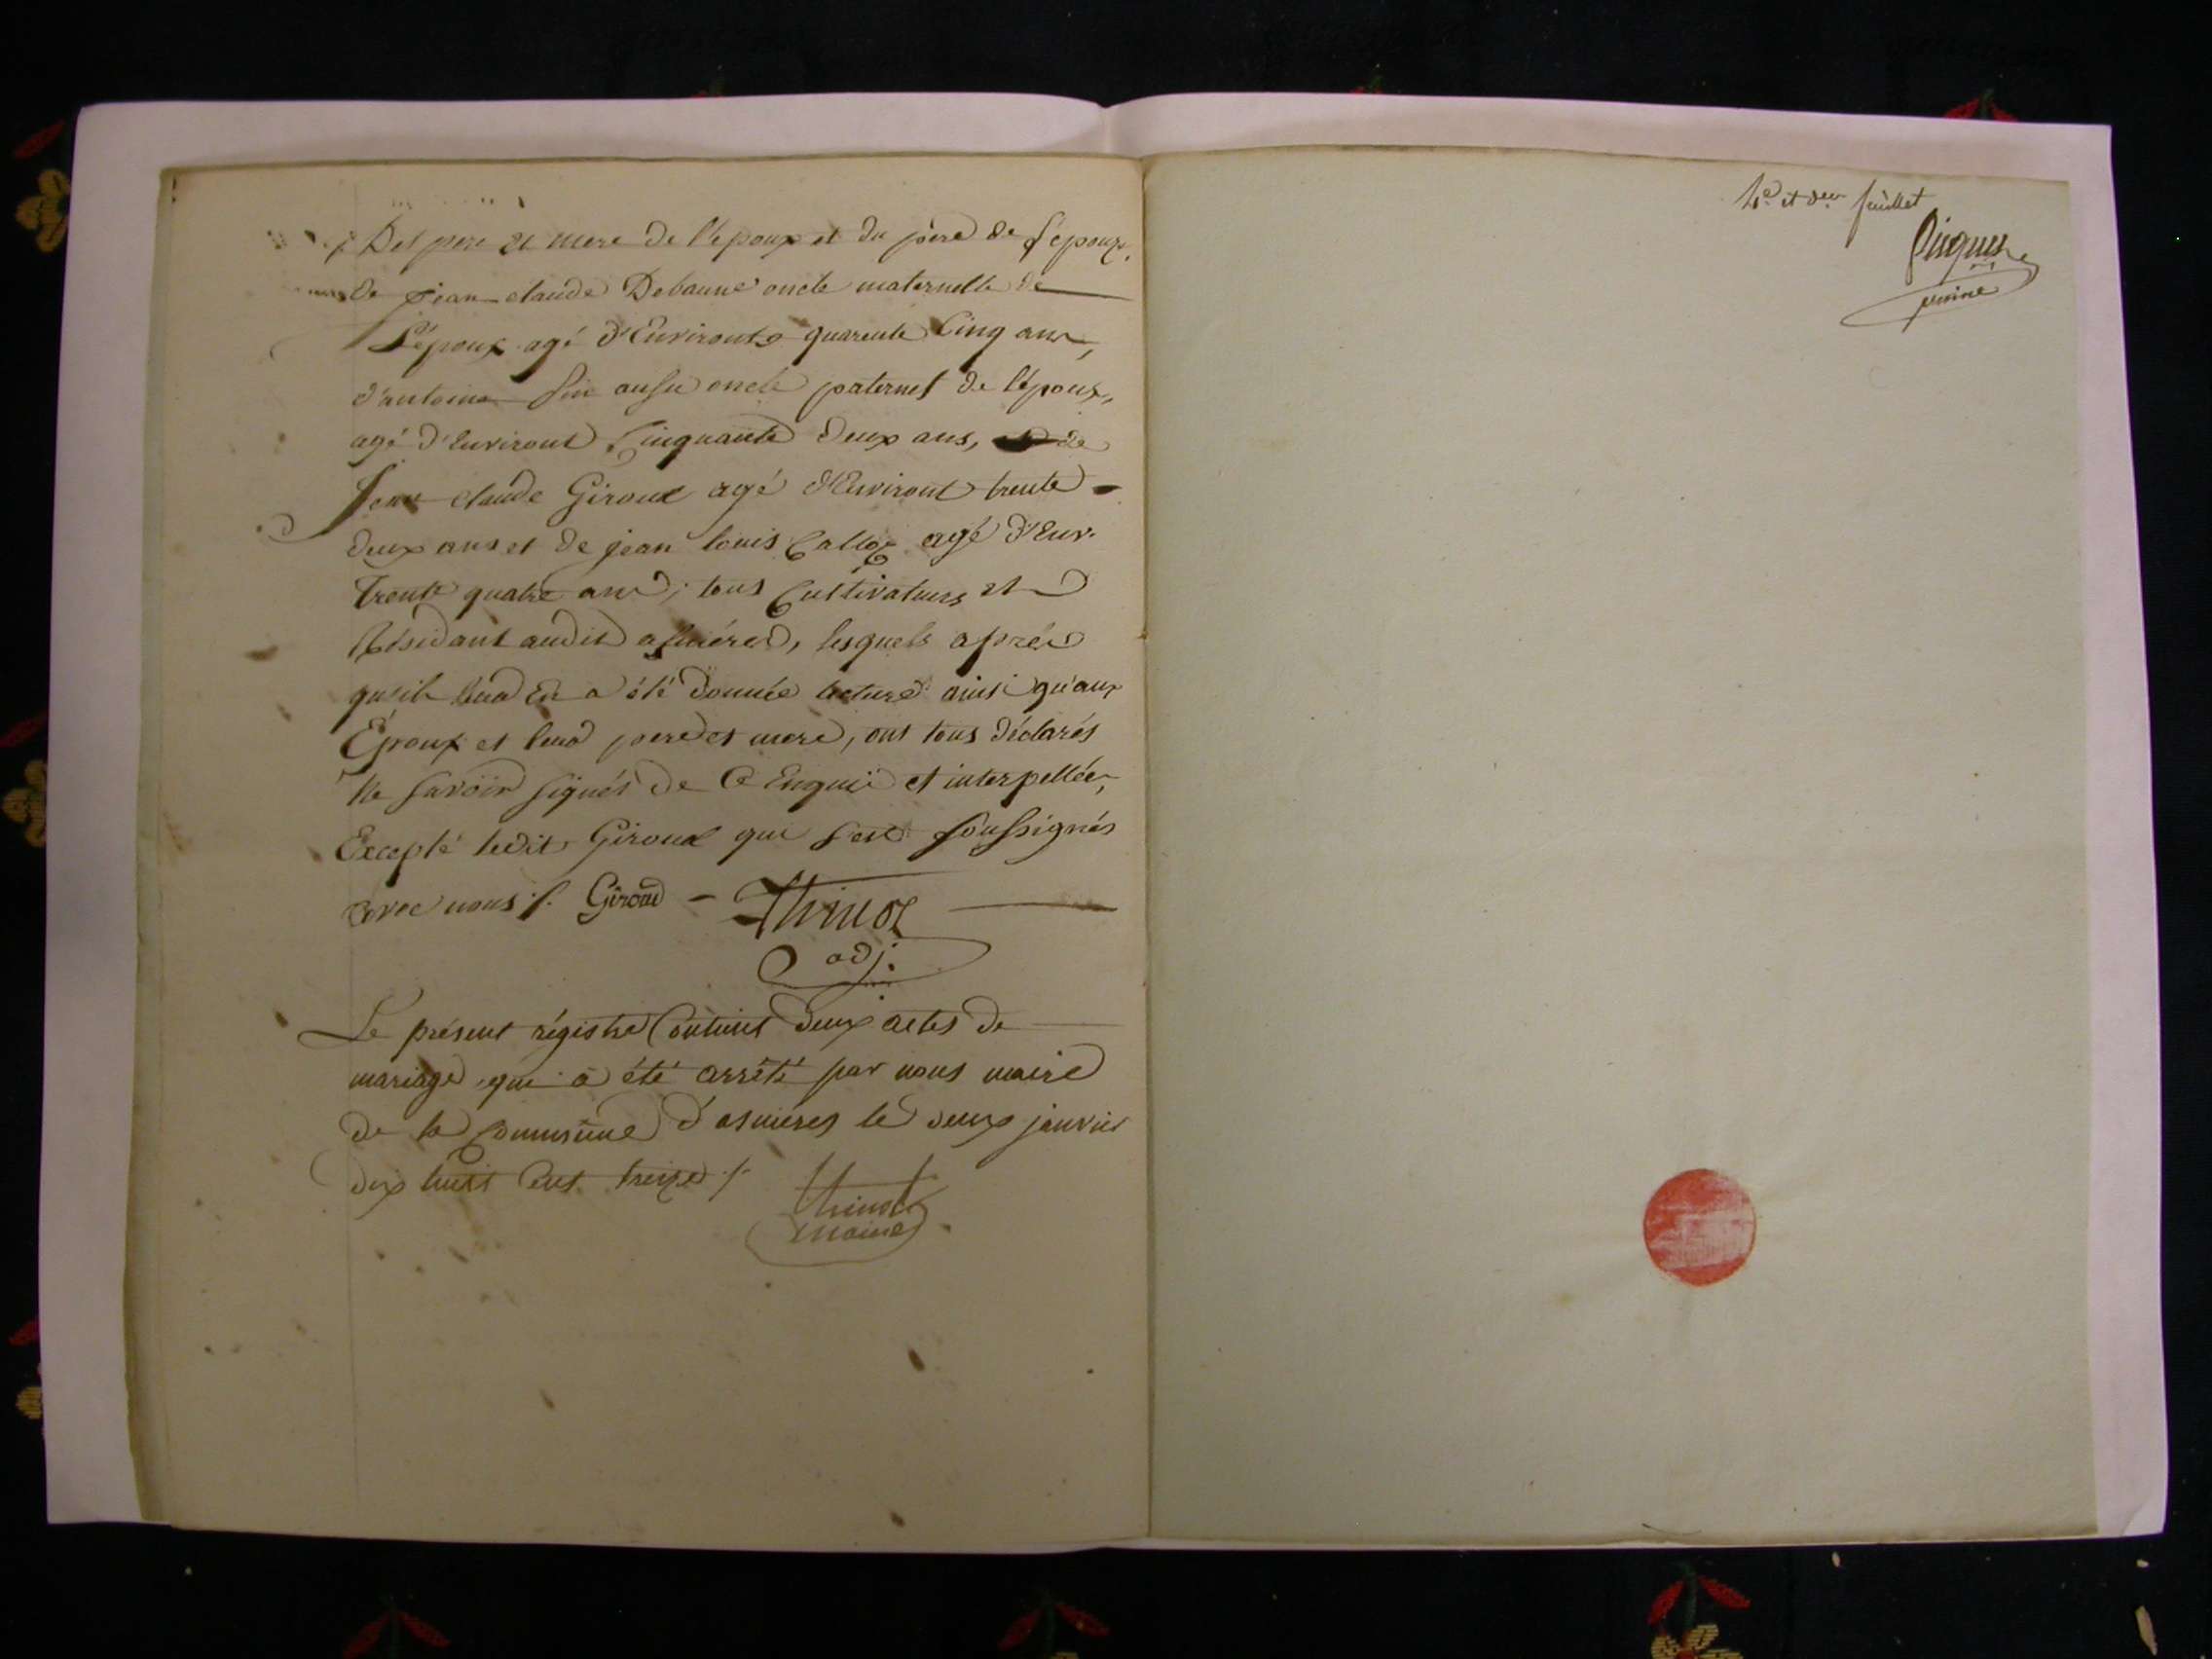 Des pere et mere de l'epoux et du père de l'epouze,
de jean claude Debaune oncle maternelle de
L'époux agé d'Environt quarente Cinq ans,
d'antoine aussi oncle paternel de l'époux,
agé d'Environt Cinquante deux ans, de
Jean claude Giroud agé d'Environt trente
deux ans et de jean louis Calloz agé d'Env.
Trente quatre ans, tous Cultivateurs et
Résidant audit asnières, lesquels après
qu'il leur En a été donnée lecture ainsi qu'aux
Époux et leur pere et mere, ont tous déclarés
Ne savoir signés de Ce Enquis et interpellées,
Excepté ledit Giroud qui s'est soussignés
avec nous ./. Giroud - Thinot
adj.
Le présent régistre Contient deux actes de
mariage qui a été arrêté par nous maire
de la Commune d'asnieres le deux janvier
dix huit Cent treize ./.
thinot
maire
4e. et der. feuillet